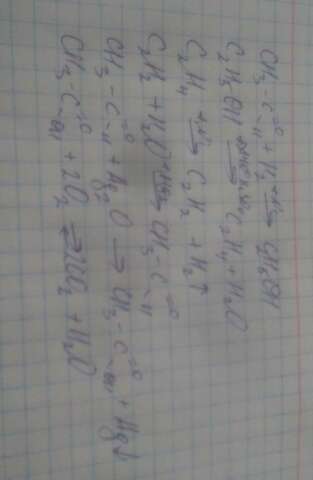 CH₃-C=O-H + H₂ → C₂H₅OH
C₂H₅OH → C₂H₄ + H₂O
C₂H₄ → C₂H₂ + H₂↑
C₂H₂ + H₂O → CH₃-C=O-H
CH₃-C=O-H + Ag₂O → CH₃-C=O-OH + Ag↓
CH₃-C=O-OH + 2O₂ → 2CO₂ + H₂O